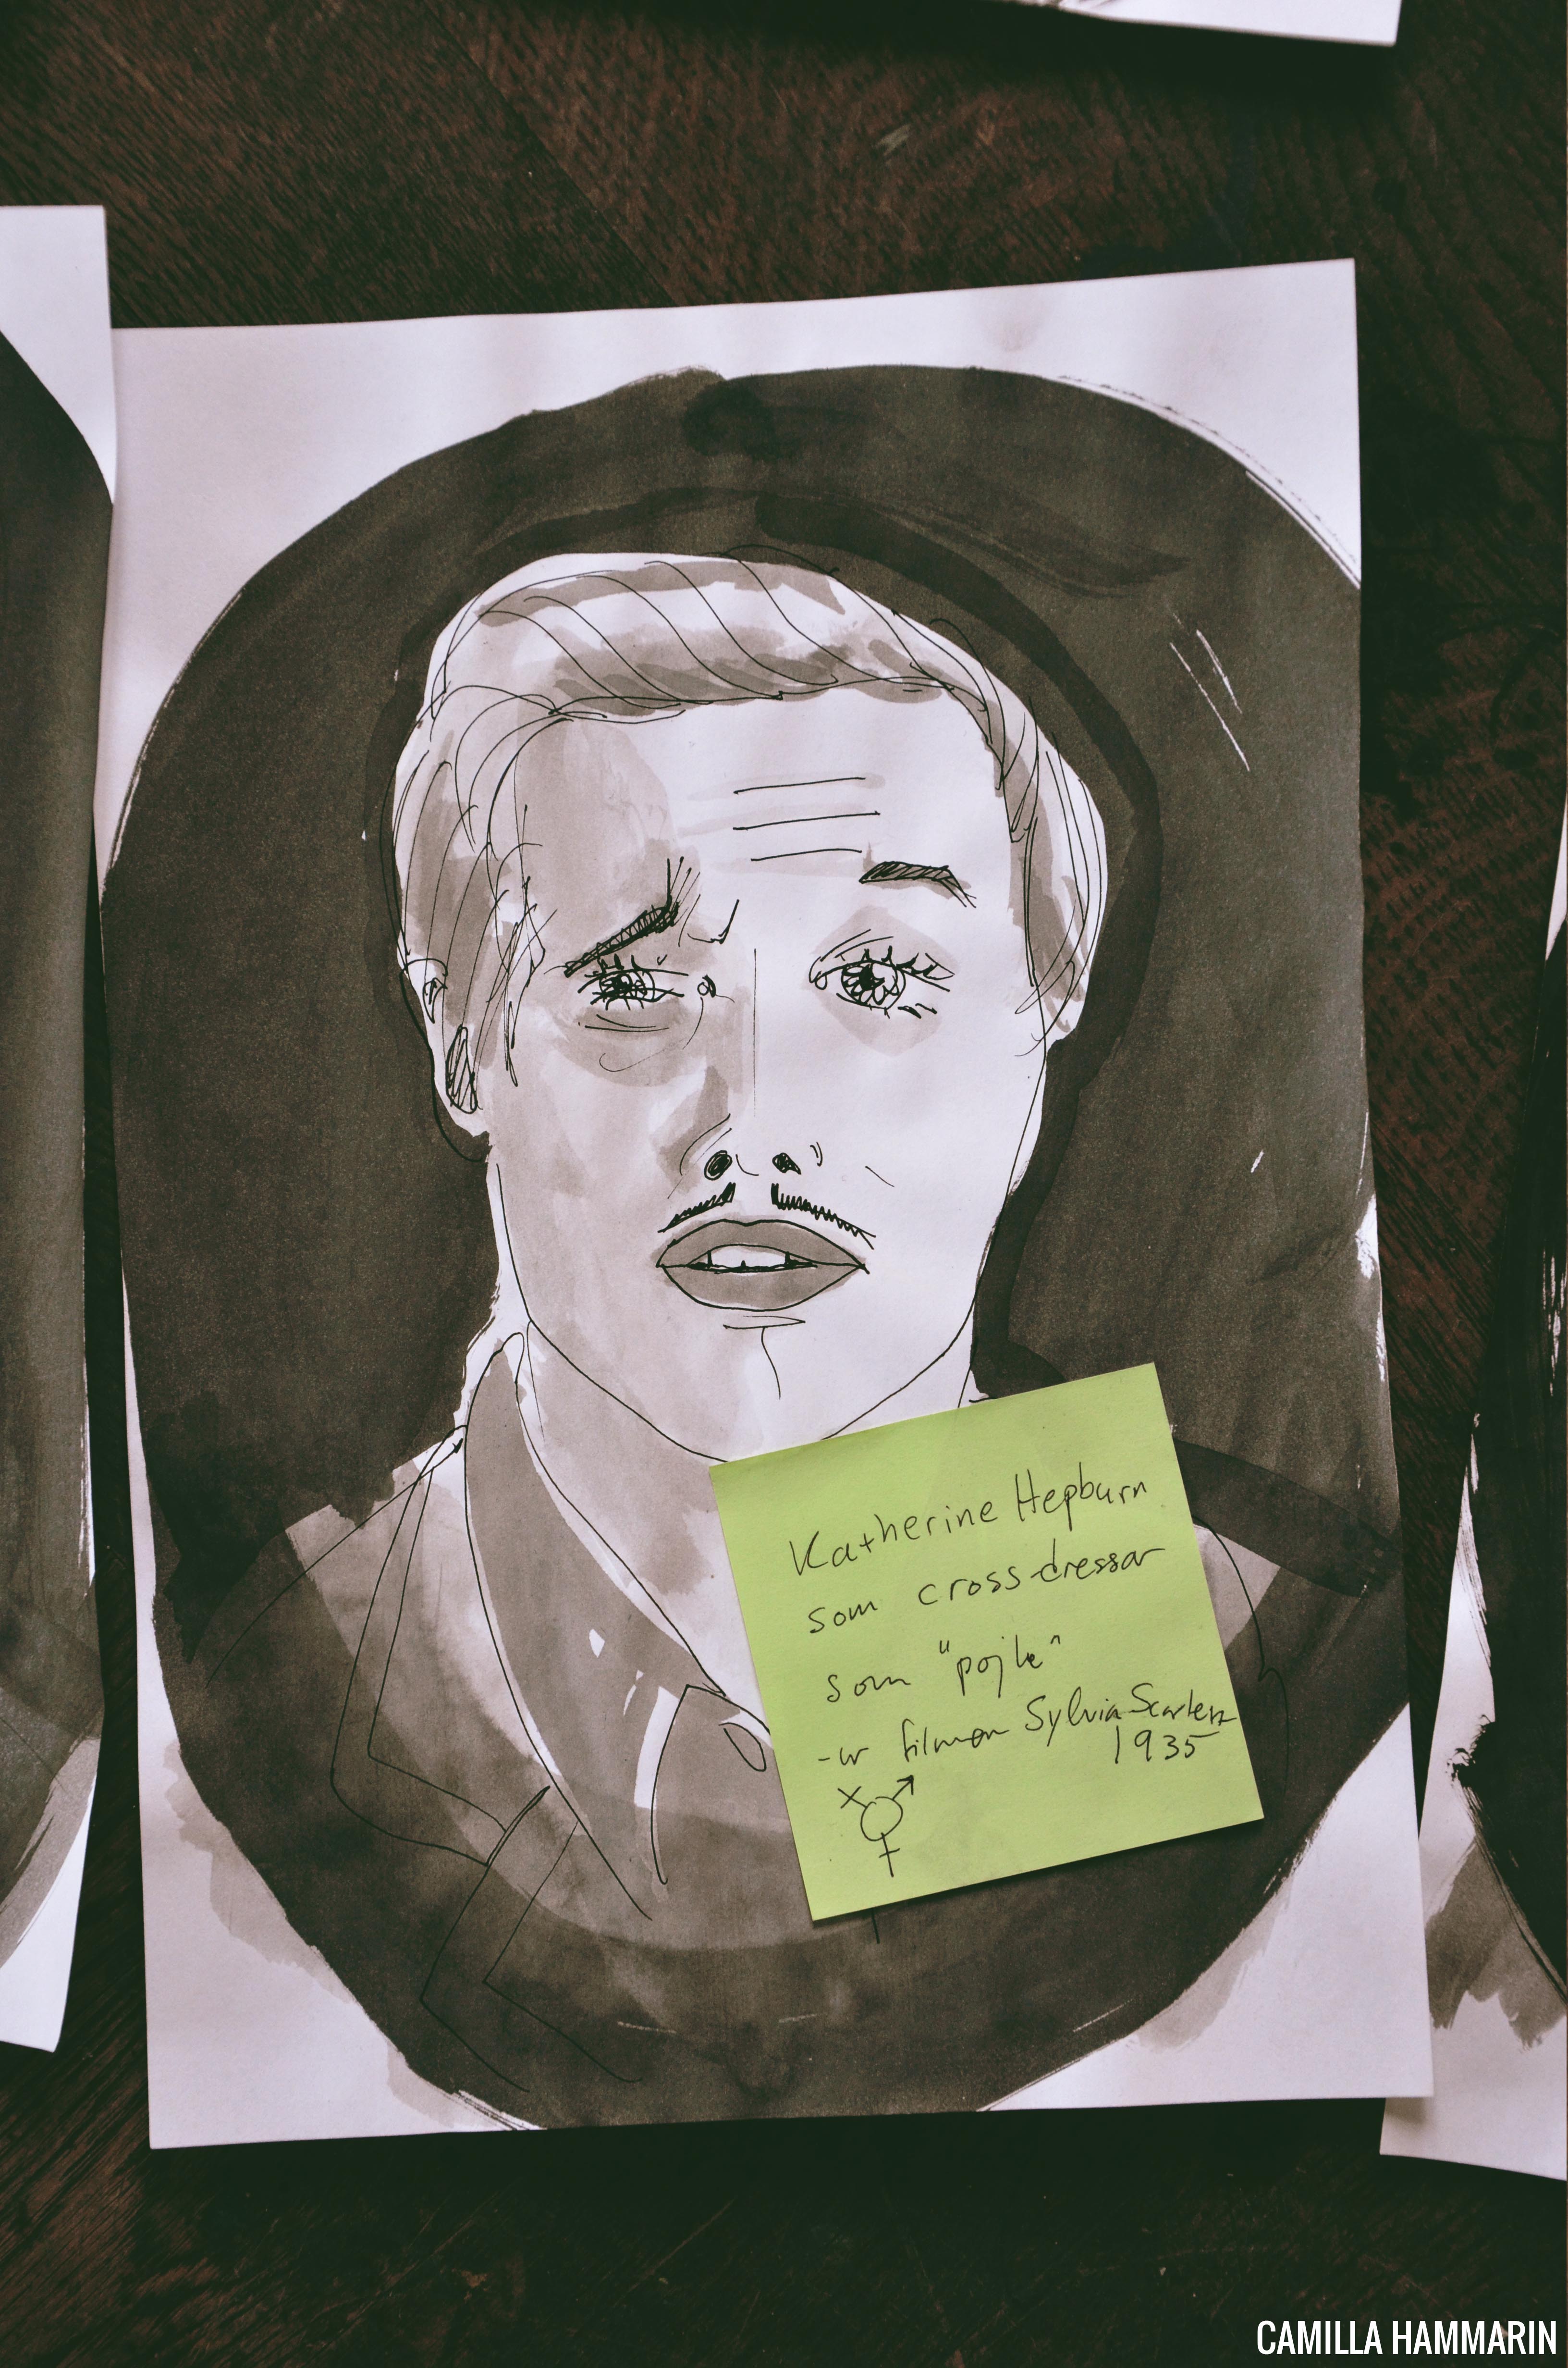 Katherine Hepburn
som cross-dressar
som "pojke"
-ur filmen Sylvia Scarlett
1935
CAMILLA HAMMARIN